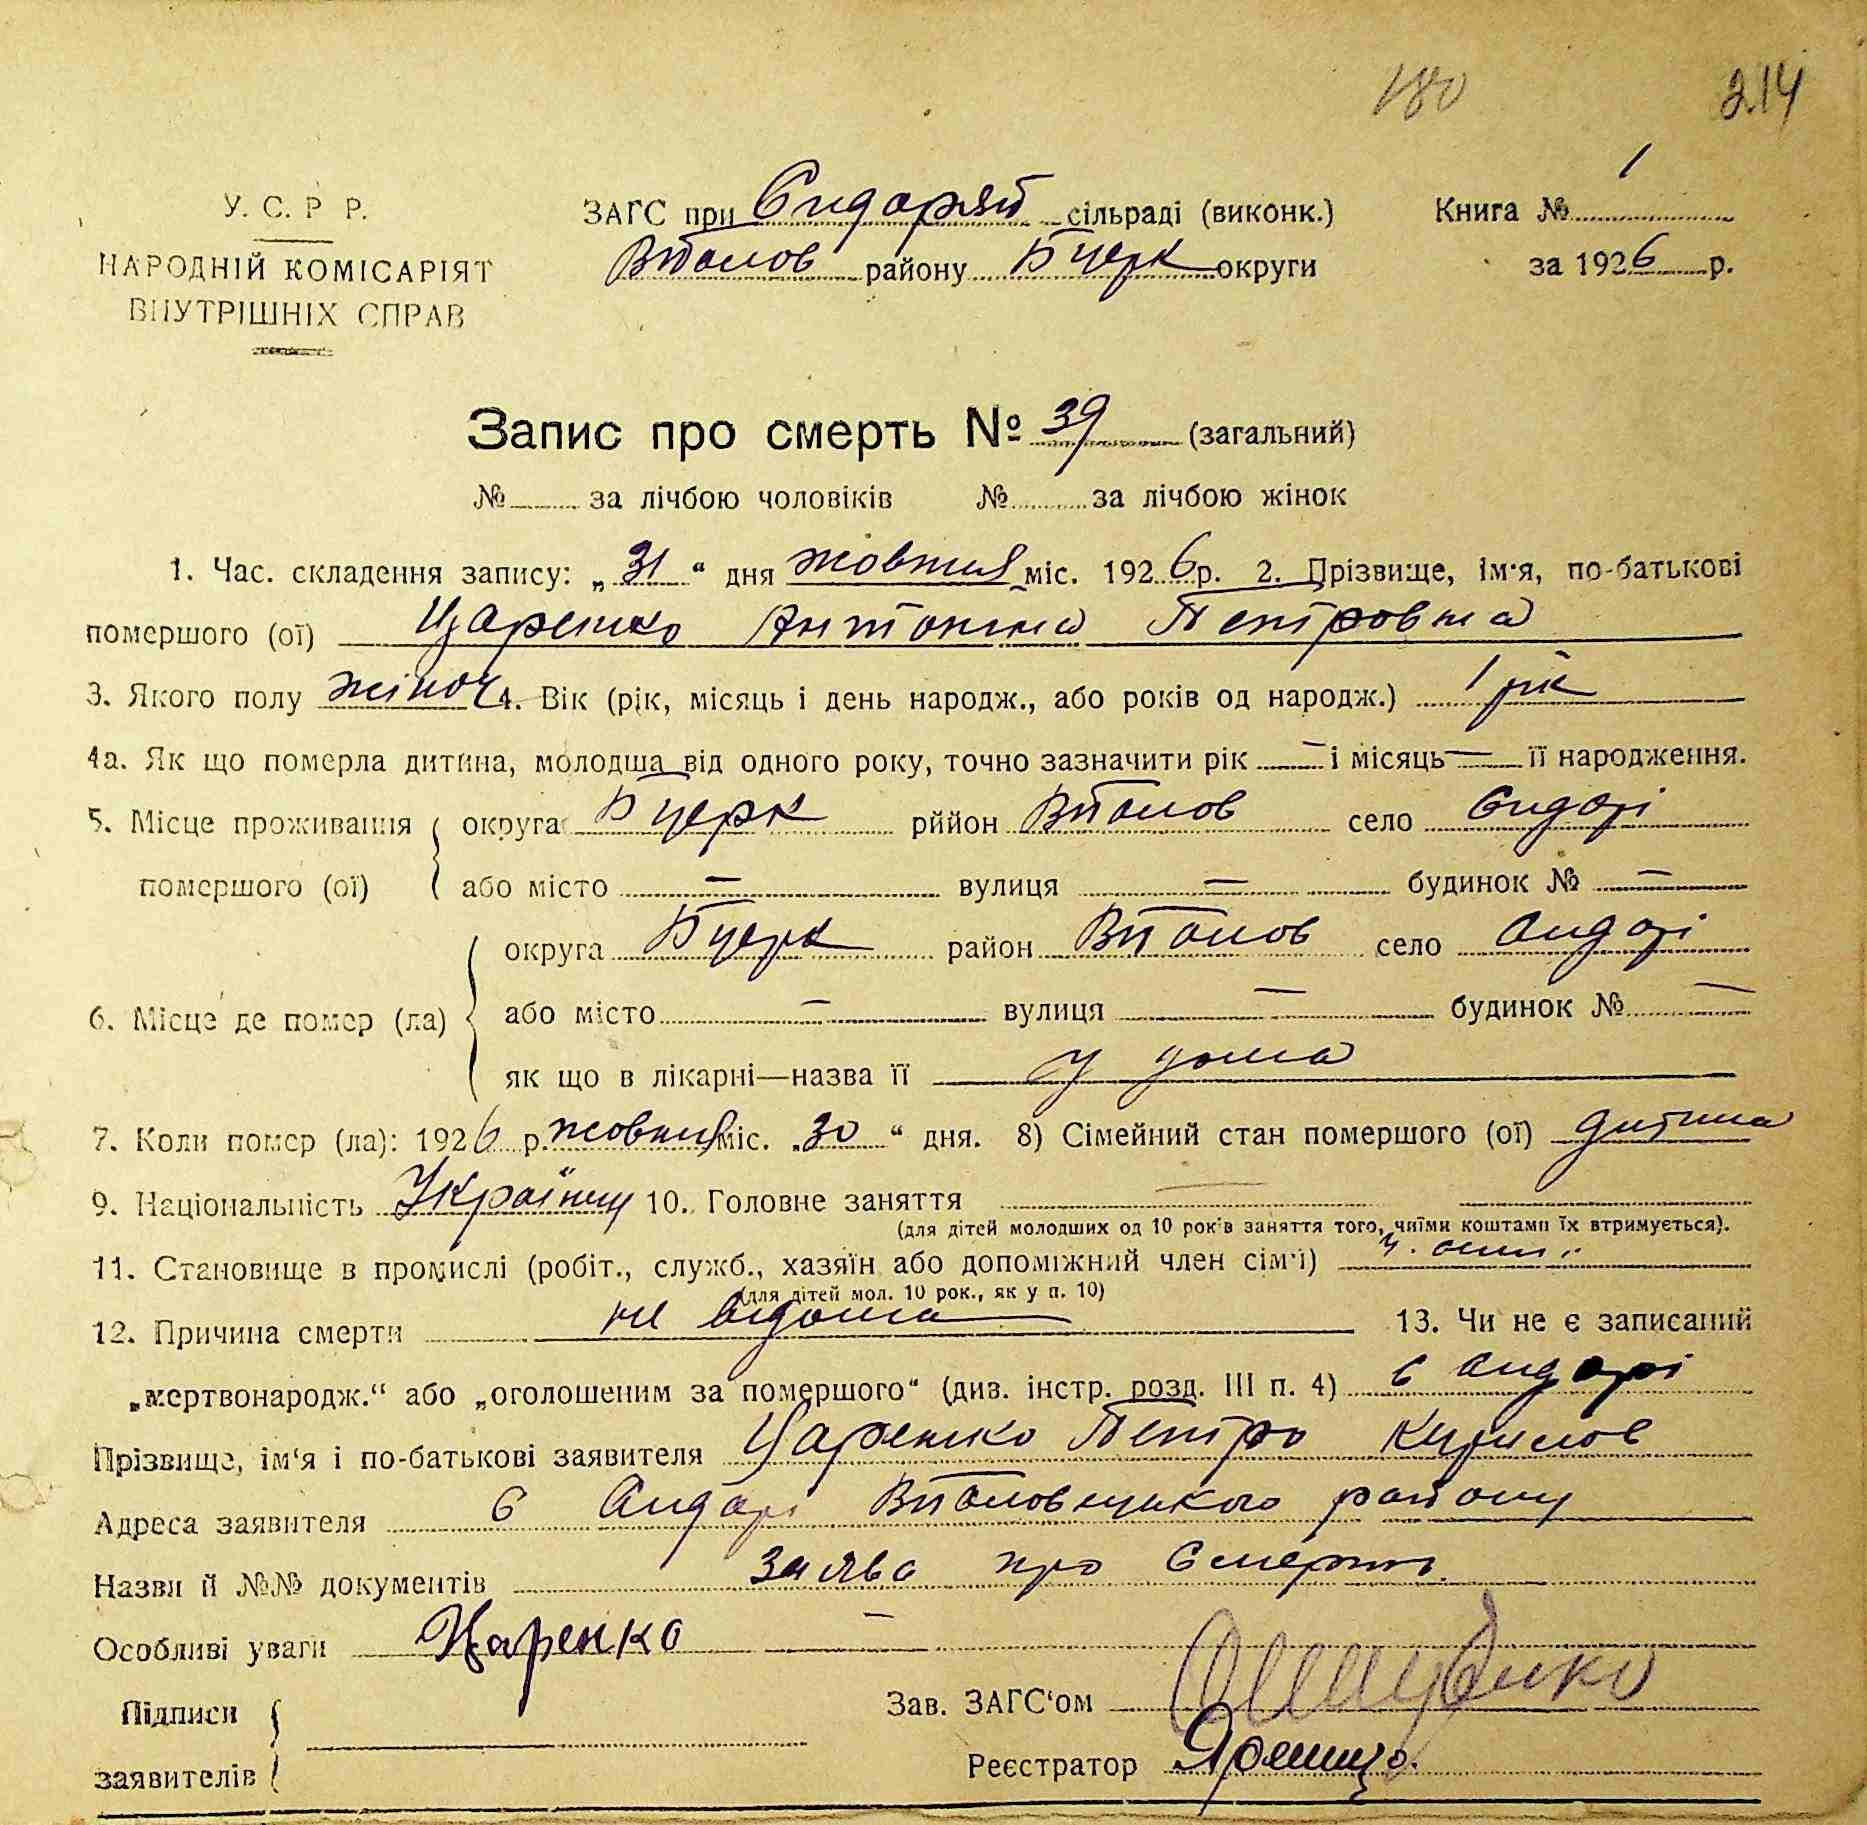 180 214
У. С. Р Р.
НАРОДНІЙ КОМІСАРІЯТ
ВНУТРІШНІХ СПРАВ
ЗАГС при сільраді (виконк.)
Втолов району Бцерк округи
Книга № 1
за 1926 р.
Запис про смерть № 39 (загальний)
№ за лічбою чоловіків № за лічбою жінок
1. Час. складення запису: „31“ дня жовтня міс. 1926 р. 2. Прізвище, ім'я, по-батькові
помершого (ої) Царенко Антоніна Петровна
3. Якого полу жіноч 4. Вік (рік, місяць і день народж., або років од народж.) 1 рік
4а. Як що померла дитина, молодша від одного року, точно зазначити рік — і місяць — її народження.
5. Місце проживання округа Бцерк рййон Втолов село
помершого (ої) або місто — вулиця — будинок № —
округа Бцерк район Втолов село
6. Місце де помер (ла) або місто — вулиця — будинок № —
як що в лікарні—назва її у дома
7. Коли помер (ла): 1926 р. жовтня міс. „30“ дня. 8) Сімейний стан помершого (ої) дитина
9. Національність Українц 10. Головне заняття —
(для дітей молодших од 10 років заняття того, чиїми коштами їх втримується).
11. Становище в промислі (робіт., служб., хазяїн або допоміжний член сім'ї)
(для дітей мол. 10 рок., як у п. 10)
12. Причина смерти не відома 13. Чи не є записаний
„мертвонародж.“ або „оголошеним за помершого“ (див. інстр. розд. III п. 4)
Прізвище, ім'я і по-батькові заявителя Царенко Петро Кирилов
Адреса заявителя с району
Назви й №№ документів Заява про смерть
Особливі уваги Царенко —
Підписи
заявителів
Зав. ЗАГС'ом
Реєстратор